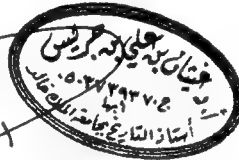 غيثان بن علي بن جريس
ج. ٠٥٠٣٧٣٩٣٧٠
أبها
أستاذ التاريخ بجامعة الملك خالد